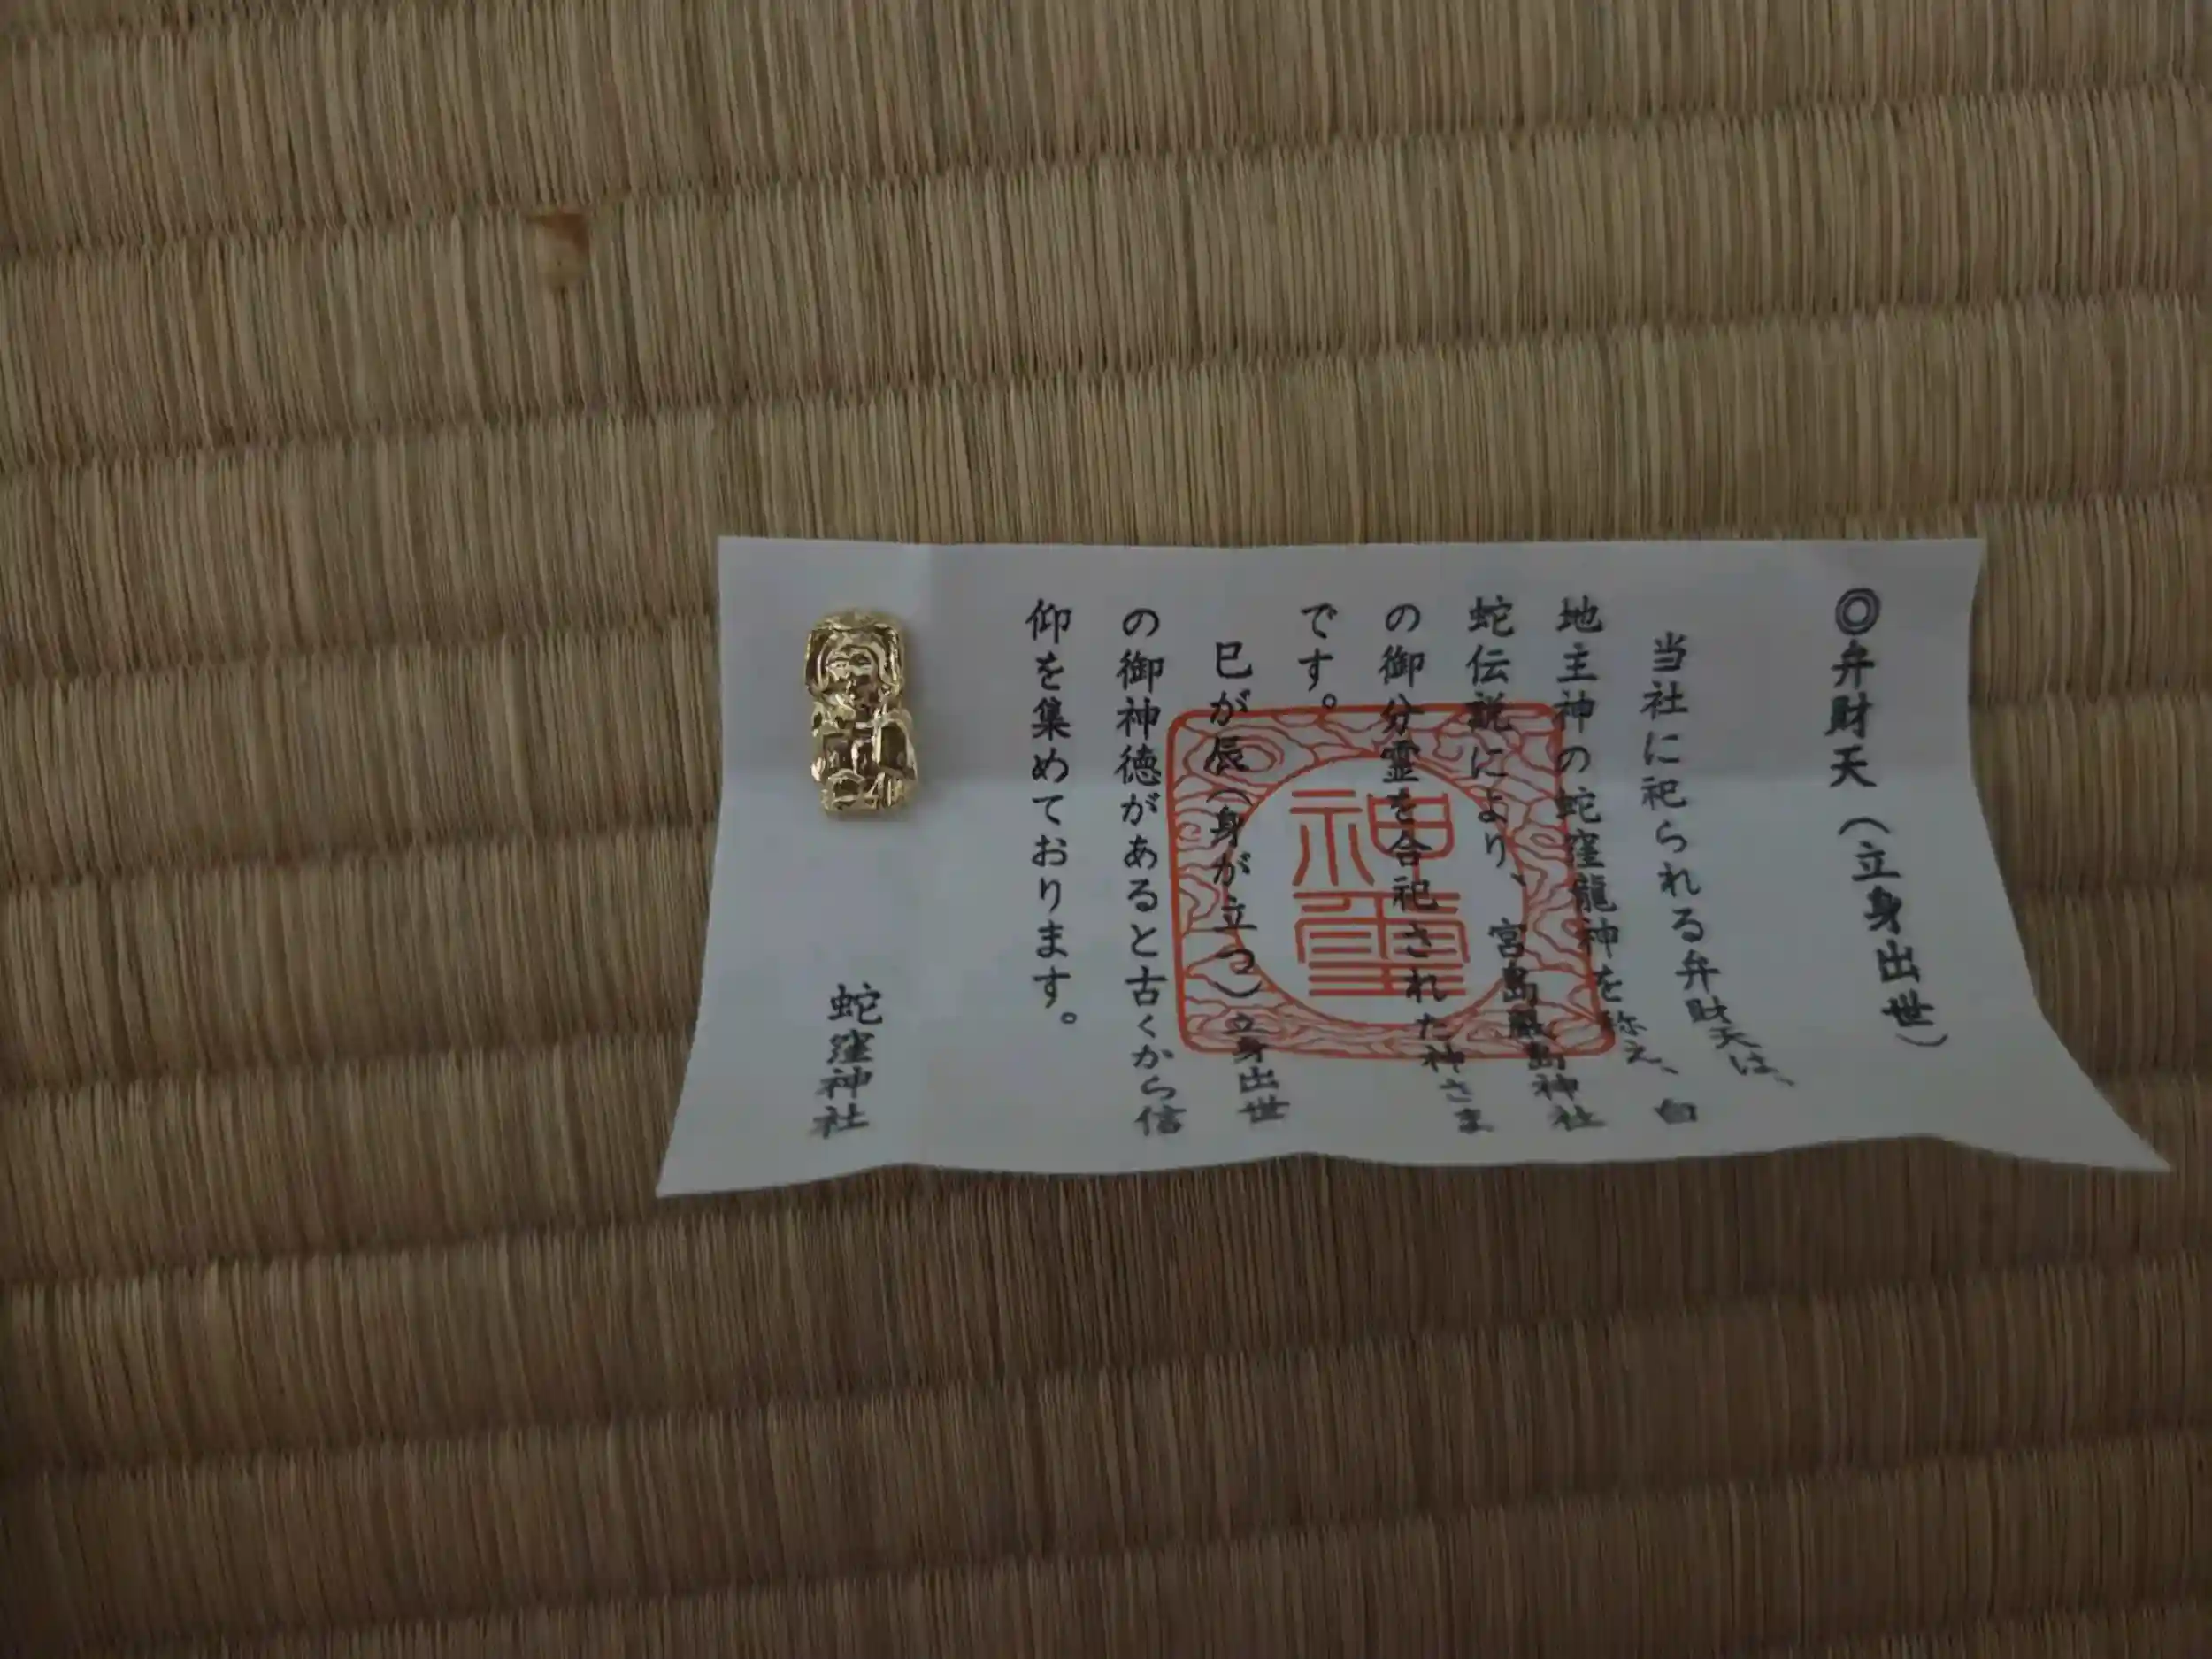 ◎弁財天（立身出世）
当社に祀られる弁財天は、
地主神の蛇窪龍神を称え、白
蛇伝説により、宮島厳島神社
の御分霊を合祀された神さま
です。
巳が辰（身が立つ）立身出世
の御神徳があると古くから信
仰を集めております。
蛇窪神社
神霊